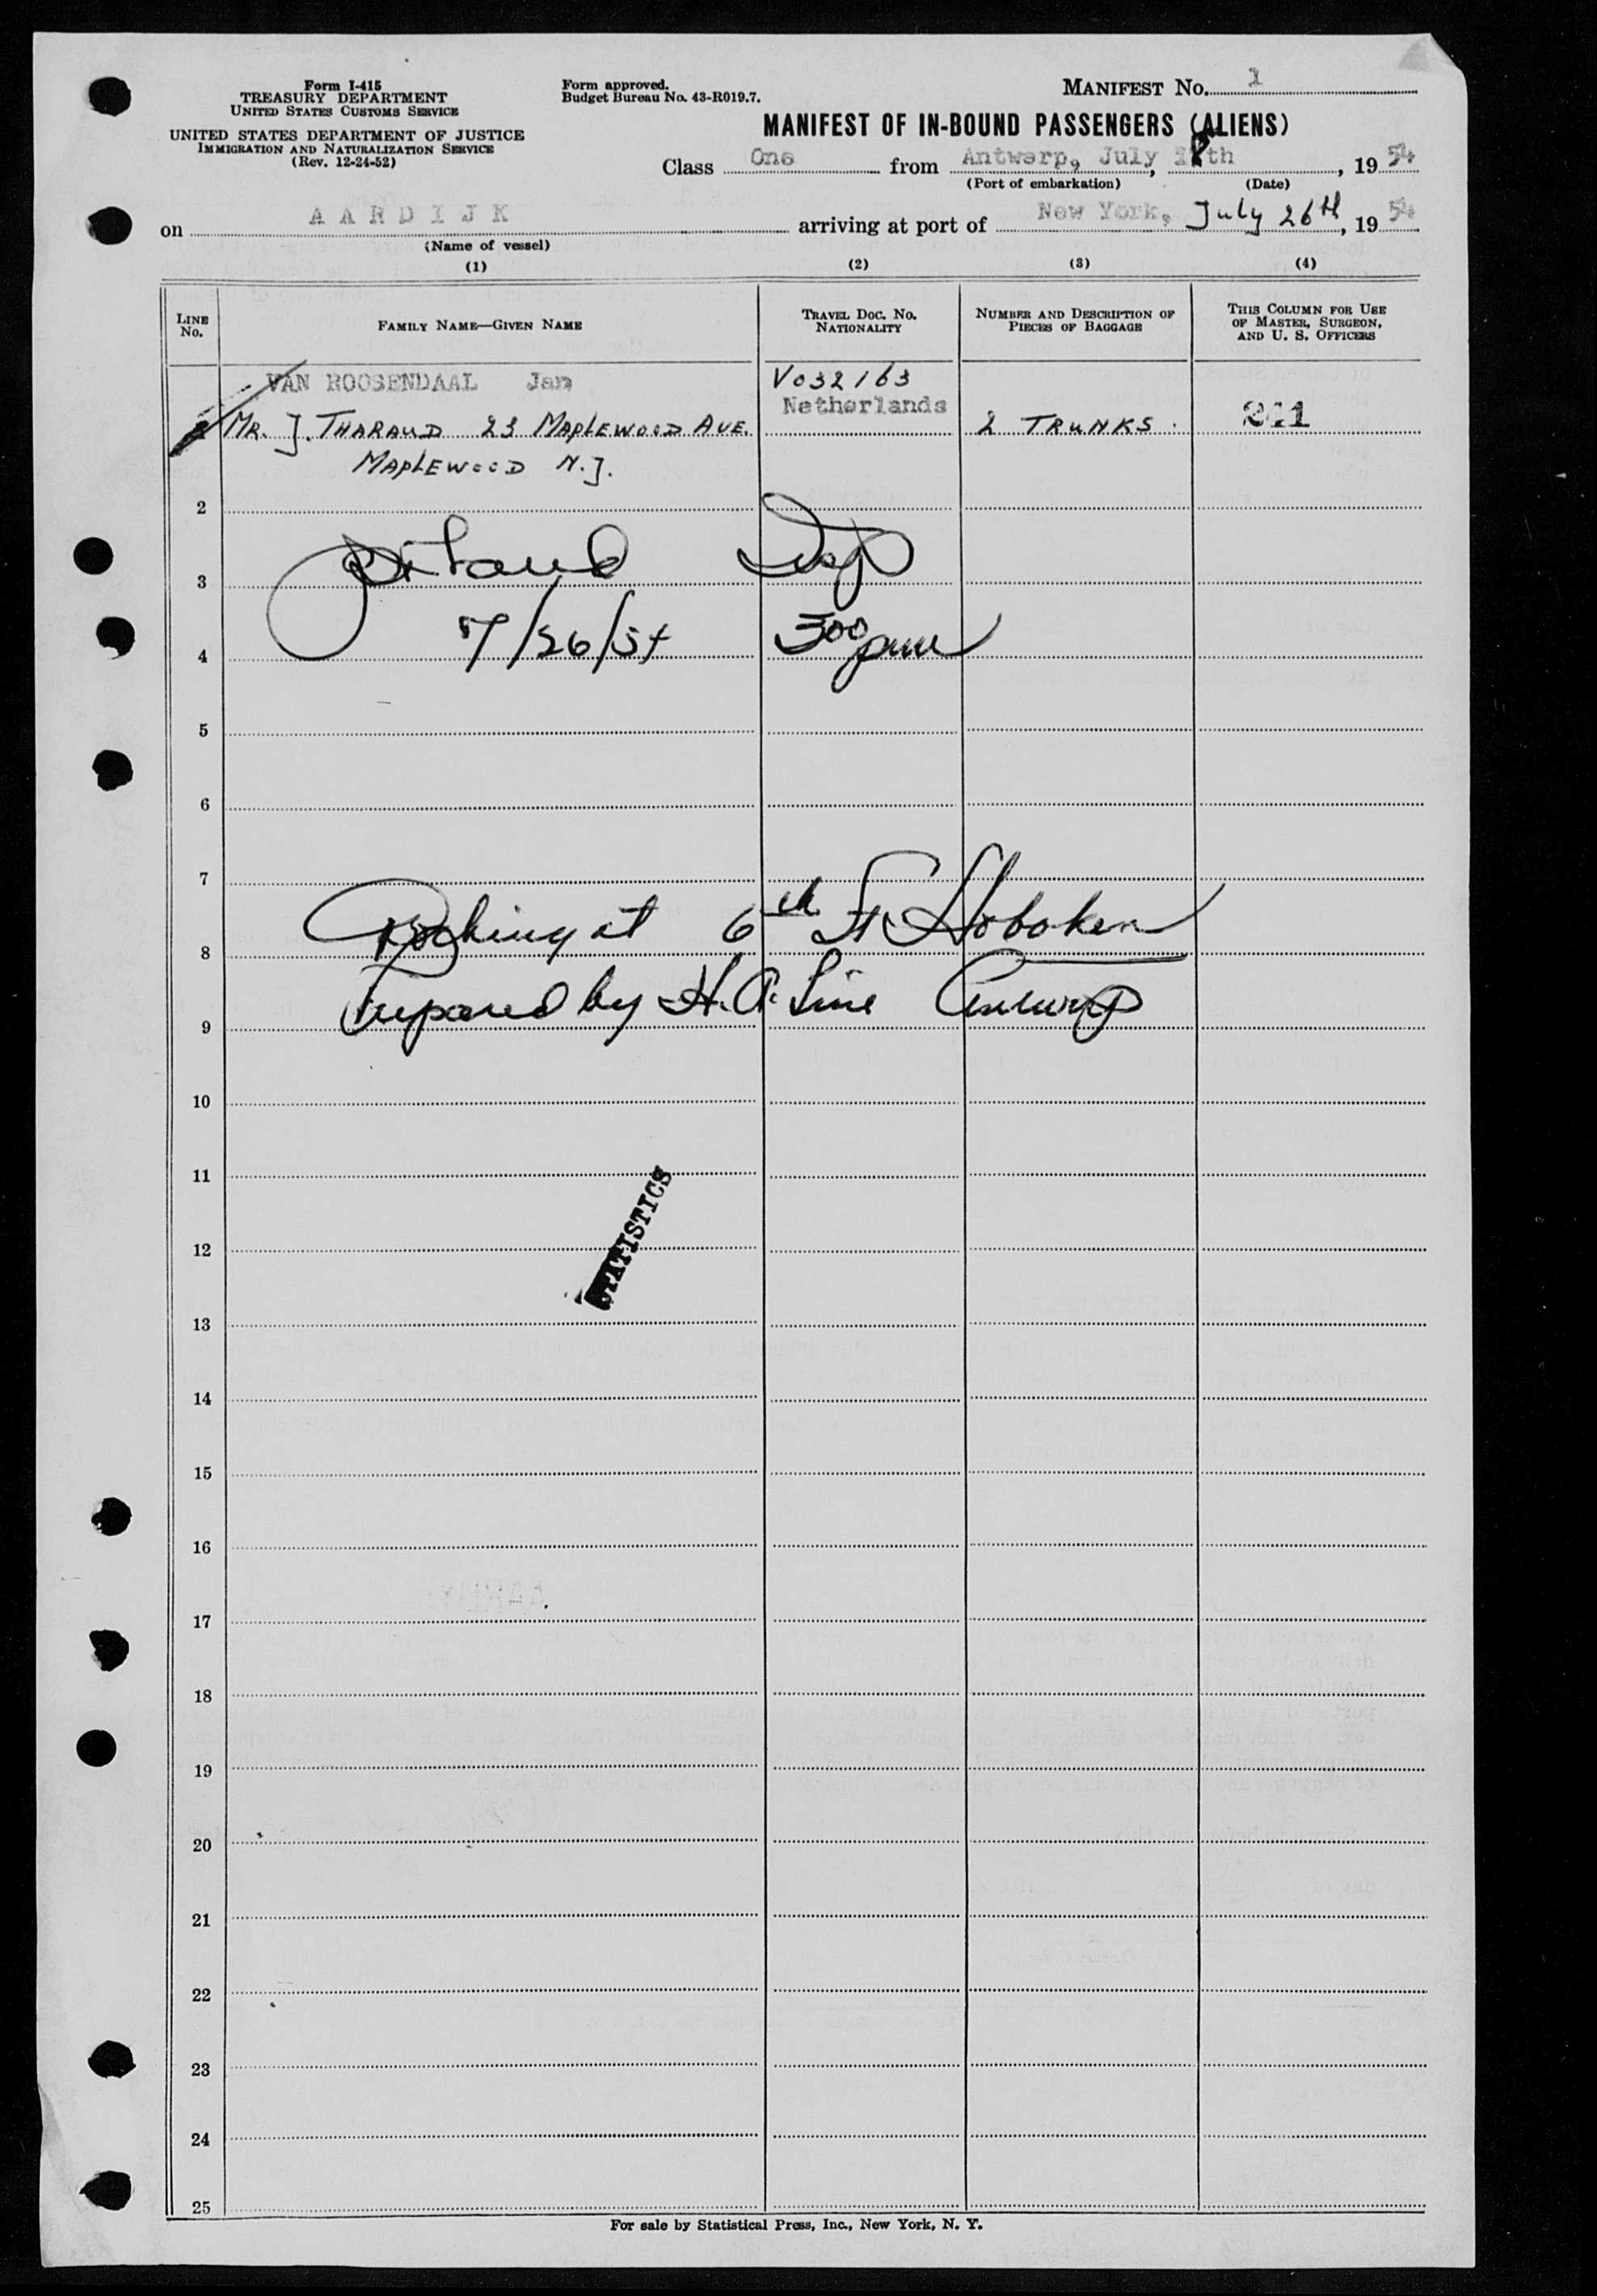 Form I-415
TREASURY DEPARTMENT
UNITED STATES CUSTOMS SERVICE
UNITED STATES DEPARTMENT OF JUSTICE
IMMIGRATION AND NATURALIZATION SERVICE
(Rev. 12-24-52)
Form approved.
Budget Bureau No. 43-R019.7.
MANIFEST No. 1
MANIFEST OF IN-BOUND PASSENGERS (ALIENS)
Class One from Antwerp, July 18th, 1954
(Port of embarkation) (Date)
on AARDIJK arriving at port of New York, July 26th, 1954
(Name of vessel)
(1) (2) (3) (4)
LINE No. FAMILY NAME—GIVEN NAME TRAVEL DOC. No. NATIONALITY NUMBER AND DESCRIPTION OF PIECES OF BAGGAGE THIS COLUMN FOR USE OF MASTER, SURGEON, AND U. S. OFFICERS
VAN ROOSENDAAL Jan V032163
Netherlands
MR. J. THARAUD 23 MAPLEWOOD AVE. 2 TRUNKS. 241
MAPLEWOOD N.J.
2
3 Insp
4 7/26/54 300 pm
5
6
7
8 Docking at 6th St Hoboken
9 Prepared by H.A. Line Antwerp
10
11
STATISTICS
12
13
14
15
16
17
18
19
20
21
22
23
24
25
For sale by Statistical Press, Inc., New York, N. Y.